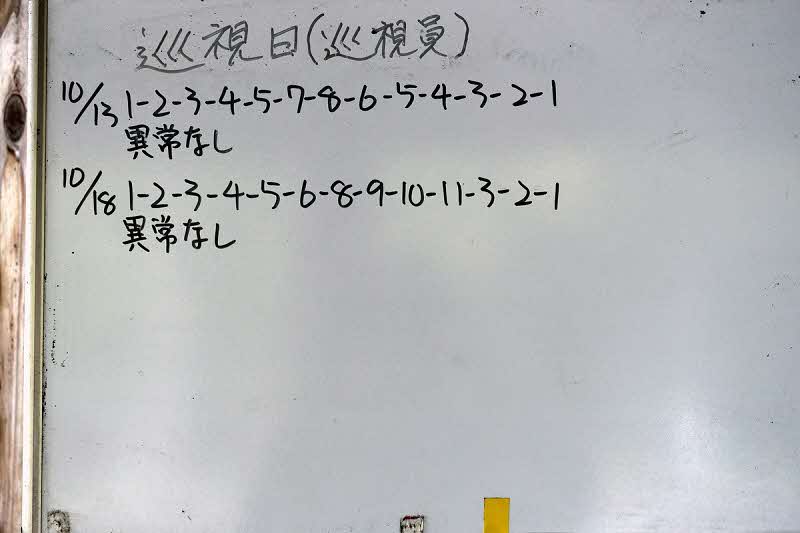 巡視日(巡視員)
10/13 1-2-3-4-5-7-8-6-5-4-3-2-1
異常なし
10/18 1-2-3-4-5-6-8-9-10-11-3-2-1
異常なし